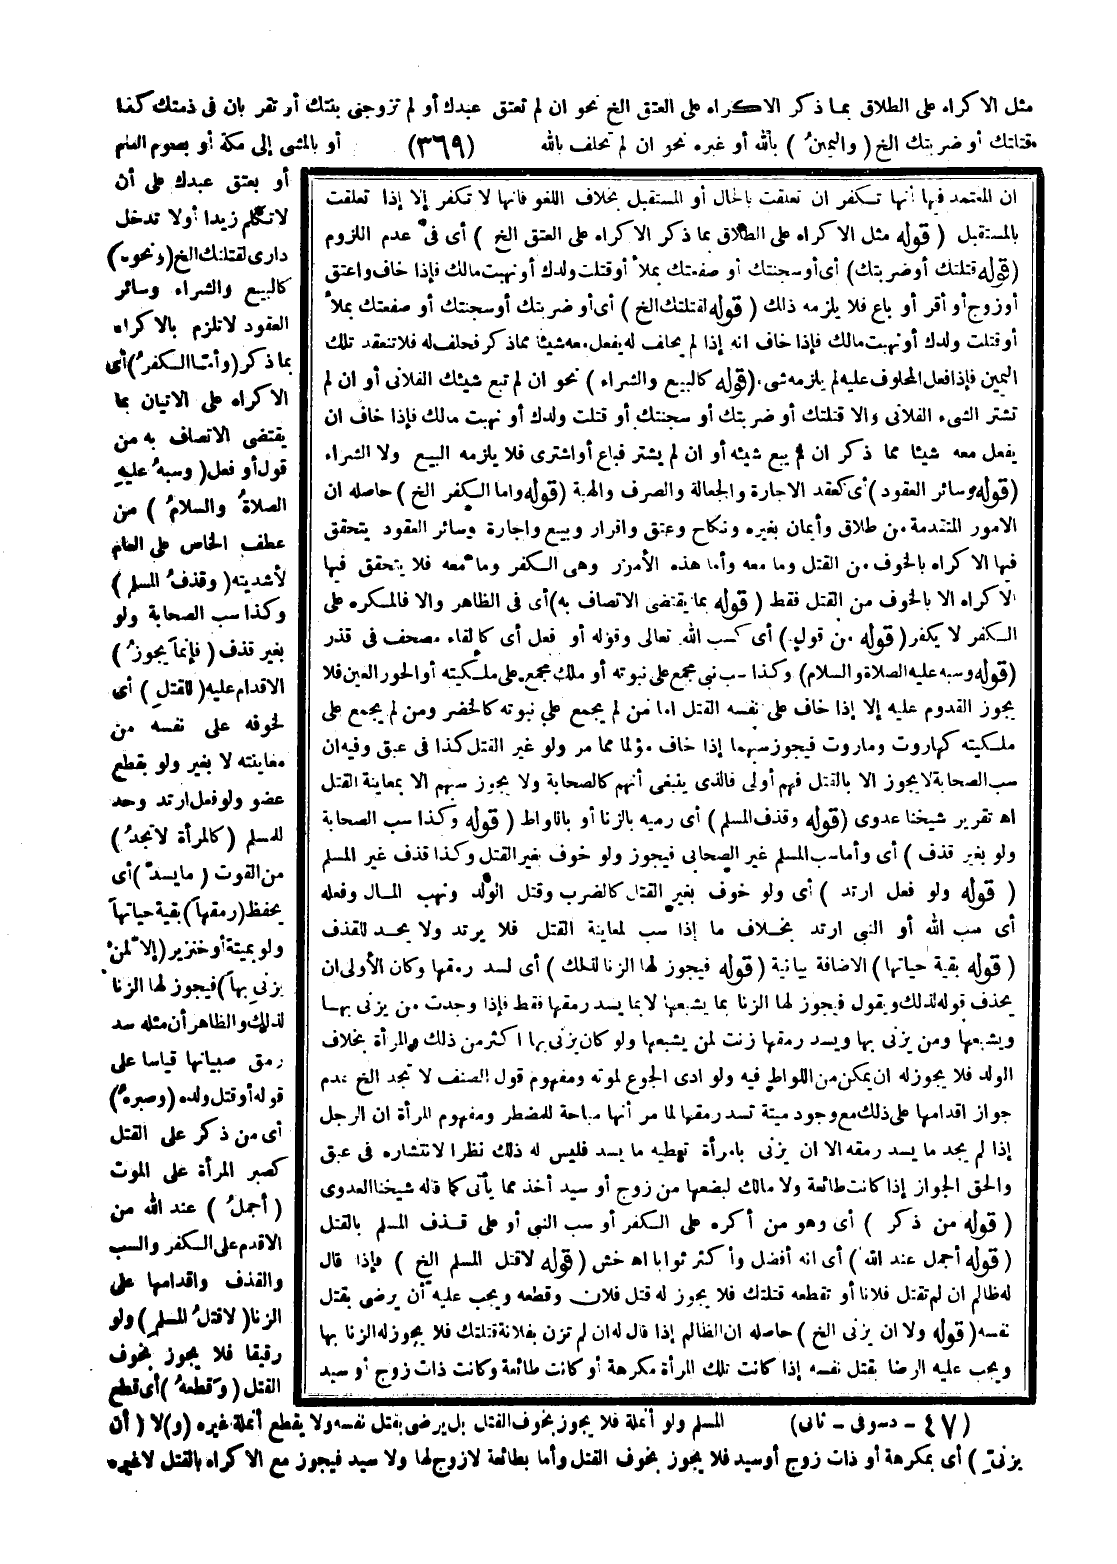 مثل الاكراه على الطلاق بما ذكر الاكراه على العتق الخ نحو ان لم تعتق عبدك أو لم تزوجنى بنتك أو تقر بان فى ذمتك كذا
لقتلتك أو ضربتك الخ (واليمين) بالله أو غيره نحو ان لم تحلف بالله (٣٦٩) أو بالمشى إلى مكة أو بصوم العام
أو بعتق عبدك على أن
لا تكلم زيدا أو لا تدخل
دارى لقتلتك الخ (ونحوه)
كالبيع والشراء وسائر
العقود لا تلزم بالاكراه
بما ذكر (وأما الكفر) أى
الاكراه على الاتيان بما
يقتضى الاتصاف به من
قول أو فعل (وسبه عليه
الصلاة والسلام) من
عطف الخاص على العام
لأشديته (وقذف المسلم)
وكذا سب الصحابة ولو
بغير قذف (فإنما يجوز)
الاقدام عليه (للقتل) أى
لخوفه على نفسه من
معاينته لا بغير ولو بقطع
عضو ولو فعل ارتد وحد
للمسلم (كالمرأة لا تجد)
من القوت (ما يسد) أى
يحفظ (رمقها) بقية حياتها
ولو بميتة أو خنزير (إلا لمن
يزنى بها) فيجوز لها الزنا
لذلك والظاهر أن مثله سد
رمق صبيانها قياسا على
قوله أو قتل ولده (وصبره)
أى من ذكر على القتل
كصبر المرأة على الموت
(أجمل) عند الله من
الاقدم على الكفر والسب
والقذف واقدامها على
الزنا (لا قتل المسلم) ولو
رقيقا فلا يجوز بخوف
القتل (وقطعه) أى قطع
ان المعتمد فيها أنها تكفر ان تعلقت بالحال أو المستقبل بخلاف اللغو فانها لا تكفر إلا إذا تعلقت
بالمستقبل (قوله مثل الاكراه على الطلاق بما ذكر الاكراه على العتق الخ) أى فى عدم اللزوم
(قوله قتلتك أو ضربتك) أى أو سجنتك أو صفعتك بملأ أو قتلت ولدك أو نهبت مالك فإذا خاف واعتق
أو زوج أو أقر أو باع فلا يلزمه ذلك (قوله لقتلتك الخ) أى أو ضربتك أو سجنتك أو صفعتك بملأ
أو قتلت ولدك أو نهبت مالك فإذا خاف انه إذا لم يحلف له يفعل معه شيئا مما ذكر فحلف له فلا تنعقد تلك
اليمين فإذا فعل المحلوف عليه لم يلزمه شىء (قوله كالبيع والشراء) نحو ان لم تبع شيئك الفلانى أو ان لم
تشتر الشىء الفلانى والا قتلتك أو ضربتك أو سجنتك أو قتلت ولدك أو نهبت مالك فإذا خاف ان
يفعل معه شيئا مما ذكر ان لم يبع شيئه أو ان لم يشتر فباع أو اشترى فلا يلزمه البيع ولا الشراء
(قوله وسائر العقود) أى كعقد الاجارة والجعالة والصرف والهبة (قوله واما الكفر الخ) حاصله ان
الامور المتقدمة من طلاق وأيمان بغيره ونكاح وعتق واقرار وبيع واجارة وسائر العقود يتحقق
فيها الاكراه بالخوف من القتل وما معه وأما هذه الأمور وهى الكفر وما معه فلا يتحقق فيها
الاكراه الا بالخوف من القتل فقط (قوله بما يقتضى الاتصاف به) أى فى الظاهر والا فالمكره على
الكفر لا يكفر (قوله من قول) أى كسب الله تعالى وقوله أو فعل أى كالقاء مصحف فى قذر
(قوله وسبه عليه الصلاة والسلام) وكذا سب نبى مجمع على نبوته أو ملك مجمع على ملكيته أو الحور العين فلا
يجوز القدوم عليه إلا إذا خاف على نفسه القتل اما من لم يجمع على نبوته كالخضر ومن لم يجمع على
ملكيته كهاروت وماروت فيجوز سبهما إذا خاف مؤلما مما مر ولو غير القتل كذا فى عبق وفيه ان
سب الصحابة لا يجوز الا بالقتل فهم أولى فالذى ينبغى أنهم كالصحابة ولا يجوز سبهم الا بمعاينة القتل
اه تقرير شيخنا عدوى (قوله وقذف المسلم) أى رميه بالزنا أو باللواط (قوله وكذا سب الصحابة
ولو بغير قذف) أى وأما سب المسلم غير الصحابى فيجوز ولو خوف بغير القتل وكذا قذف غير المسلم
(قوله ولو فعل ارتد) أى ولو خوف بغير القتل كالضرب وقتل الولد ونهب المال وفعله
أى سب الله أو النبى ارتد بخلاف ما إذا سب لمعاينة القتل فلا يرتد ولا يحد للقذف
(قوله بقية حياتها) الاضافة بيانية (قوله فيجوز لها الزنا لذلك) أى لسد رمقها وكان الأولى ان
يحذف قوله لذلك ويقول فيجوز لها الزنا بما يشبعها لا بما يسد رمقها فقط فإذا وجدت من يزنى بها
ويشبعها ومن يزنى بها ويسد رمقها زنت لمن يشبعها ولو كان يزنى بها اكثر من ذلك والمرأة بخلاف
الولد فلا يجوز له ان يمكن من اللواط فيه ولو ادى الجوع لموته ومفهوم قول المصنف لا تجد الخ عدم
جواز اقدامها على ذلك مع وجود ميتة تسد رمقها لما مر أنها مباحة للمضطر ومفهوم المرأة ان الرجل
إذا لم يجد ما يسد رمقه الا ان يزنى بامرأة تعطيه ما يسد فليس له ذلك نظرا لانتشاره فى عبق
والحق الجواز إذا كانت طائعة ولا مالك لبضعها من زوج أو سيد أخذ مما يأتى كما قاله شيخنا العدوى
(قوله من ذكر) أى وهو من أكره على الكفر أو سب النبى أو على قذف المسلم بالقتل
(قوله أجمل عند الله) أى انه أفضل وأكثر ثوابا اه خش (قوله لا قتل المسلم الخ) فإذا قال
له ظالم ان لم تقتل فلانا أو تقطعه قتلتك فلا يجوز له قتل فلان وقطعه ويجب عليه أن يرضى بقتل
نفسه (قوله ولا ان يزنى الخ) حاصله ان الظالم إذا قال له ان لم تزن بفلانة قتلتك فلا يجوز له الزنا بها
ويجب عليه الرضا بقتل نفسه إذا كانت تلك المرأة مكرهة أو كانت طائعة وكانت ذات زوج أو سيد
(٤٧ - دسوقى - ثانى) المسلم ولو أنملة فلا يجوز بخوف القتل بل يرضى بقتل نفسه ولا يقطع أنملة غيره (و) لا (أن
يزنى) أى بمكرهة أو ذات زوج أو سيد فلا يجوز بخوف القتل وأما بطائعة لا زوج لها ولا سيد فيجوز مع الاكراه بالقتل لا غيره